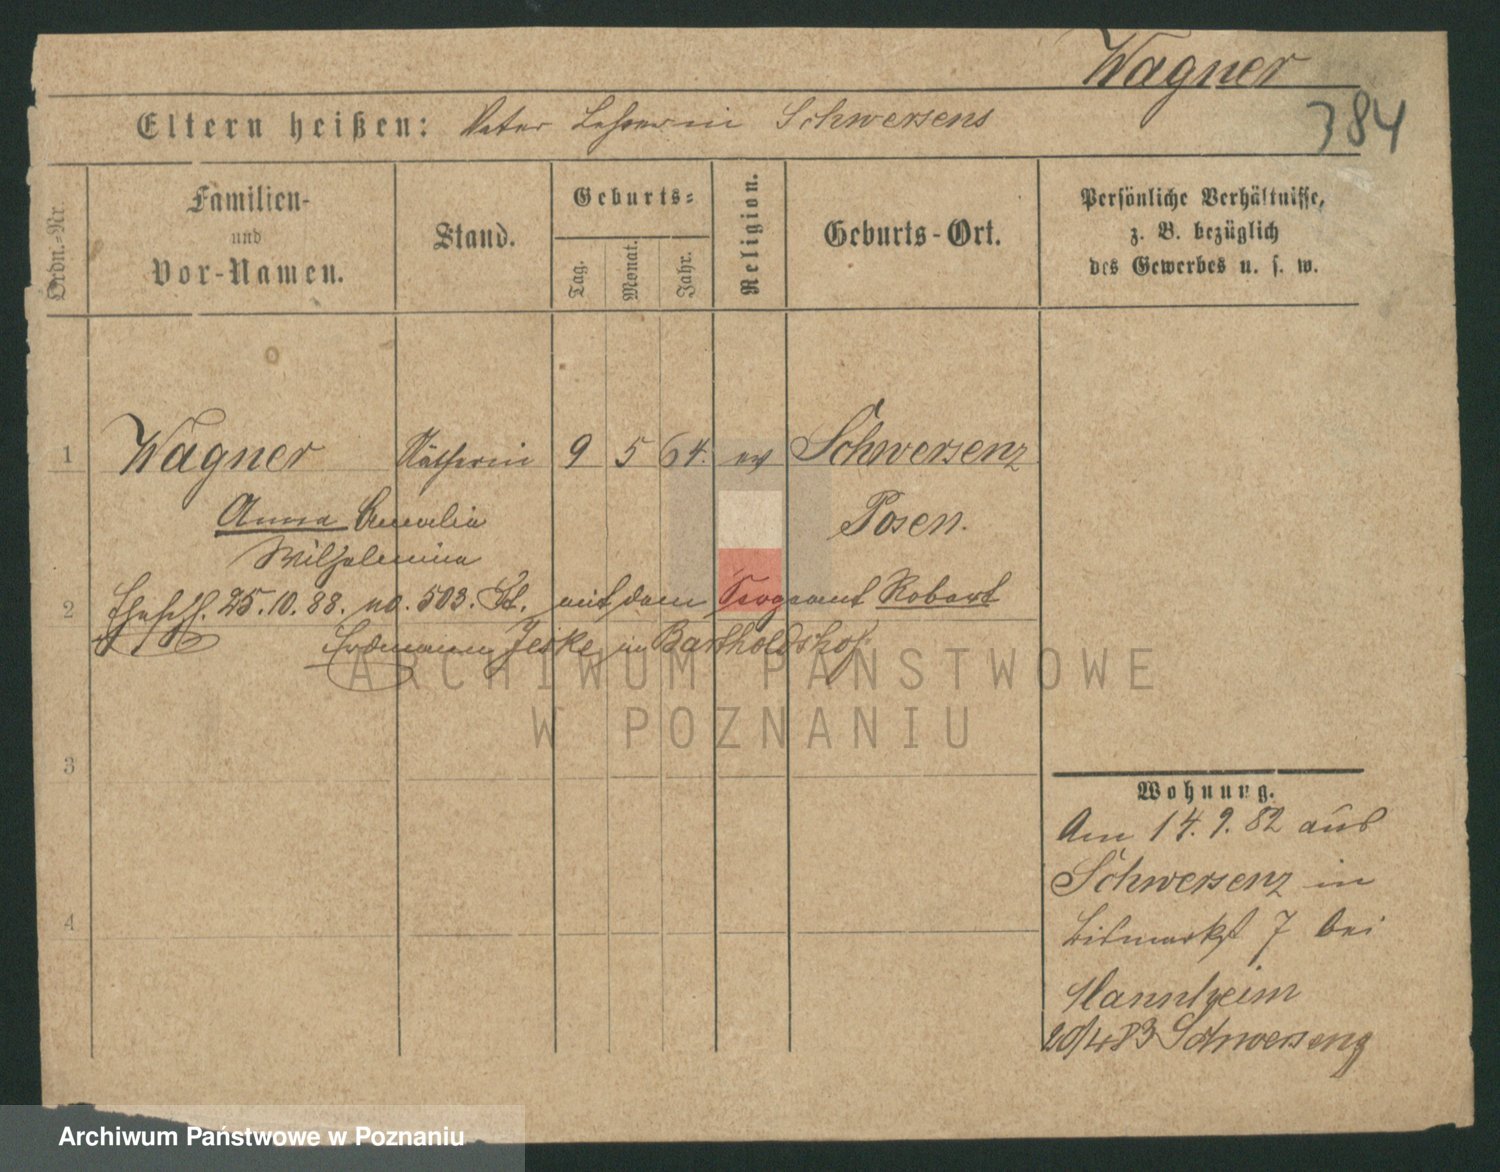 Wagner
384
Eltern heißen: Vater Lehrer in Schwersens
Ordn.-Nr.
Familien-
und
Vor-Namen.
Stand.
Geburts-
Tag.
Monat.
Jahr.
Religion.
Geburts-Ort.
Persönliche Verhältnisse,
z. B. bezüglich
des Gewerbes u. s. w.
1 Wagner Nätherin 9 5 64. ev Schwersenz
Anna Amalia Posen.
Wilhelmina
2 Ehesch. 25.10.88. no. 503. mit dem Sergeant Robert
Erdmann Jeske in Bartholdshof
ARCHIWUM PAŃSTWOWE
W POZNANIU
3
4
Wohnung.
Am 14.9.82 aus
Schwersenz in
7 bei
Mannheim
20/4 83 Schwersenz
Archiwum Państwowe w Poznaniu